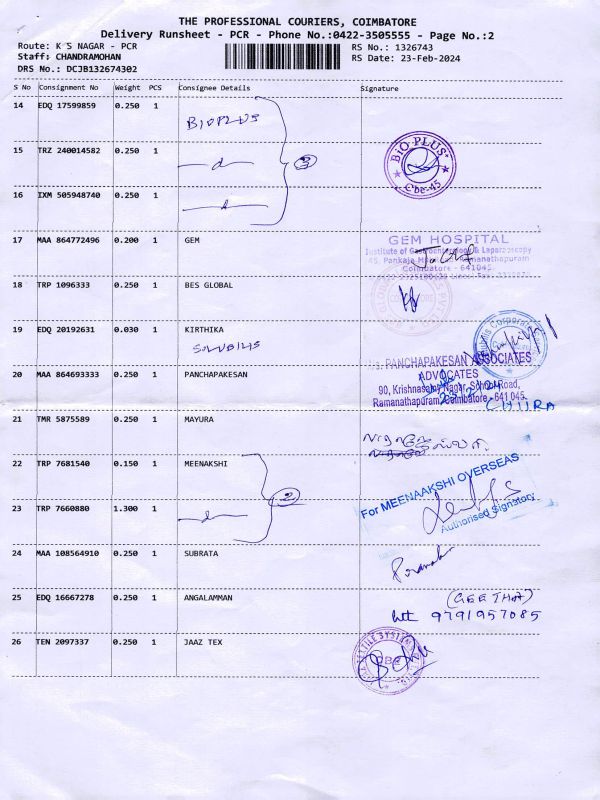 THE PROFESSIONAL COURIERS, COIMBATORE
Delivery Runsheet - PCR - Phone No.:0422-3505555 - Page No.:2
Route: K S NAGAR - PCR
RS No.: 1326743
Staff: CHANDRAMOHAN
RS Date: 23-Feb-2024
DRS No.: DCJB132674302
S No Consignment No Weight PCS Consignee Details Signature
14 EDQ 17599859 0.250 1 BIOPLUS
15 TRZ 240014582 0.250 1
3
BIO PLUS
Cbe-45
16 IXM 505948740 0.250 1
17 MAA 864772496 0.200 1 GEM
GEM HOSPITAL
Institute of Gastroenterology & Laparoscopy
45, Pankaja Ramanathapuram
Coimbatore - 641045.
18 TRP 1096333 0.250 1 BES GLOBAL
19 EDQ 20192631 0.030 1 KIRTHIKA
SOLUBILIS
Corporate
20 MAA 864693333 0.250 1 PANCHAPAKESAN
PANCHAPAKESAN ASSOCIATES
ADVOCATES
90, Krishnasamy Nagar, School Road,
Ramanathapuram, Coimbatore - 641 045.
CHITRA
21 TMR 5875589 0.250 1 MAYURA
22 TRP 7681540 0.150 1 MEENAKSHI
2
For MEENAAKSHI OVERSEAS
Authorised Signatory
23 TRP 7660880 1.300 1
24 MAA 108564910 0.250 1 SUBRATA
25 EDQ 16667278 0.250 1 ANGALAMMAN
(GEETHA)
9791957085
26 TEN 2097337 0.250 1 JAAZ TEX